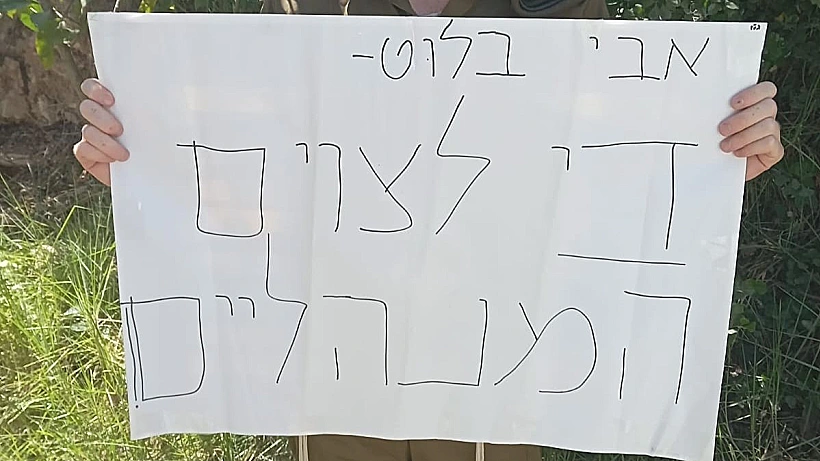 אבי בלוט-
די לצוים
המנהליים